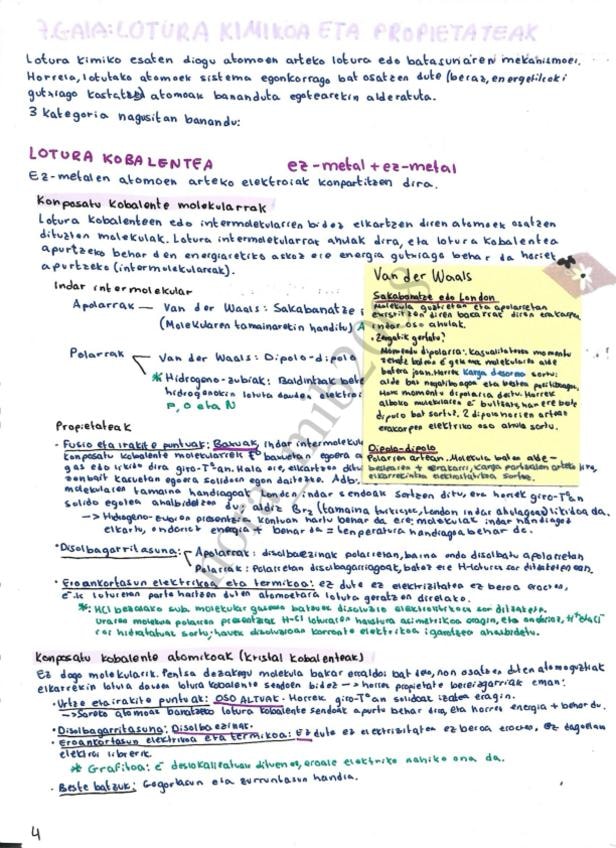 7.GAIA: LOTURA KIMIKOA ETA PROPIETATEAK
Lotura kimiko esaten diogu atomoen arteko lotura edo batasunaren mekanismoei.
Horrela, lotutako atomoek sistema egonkorrago bat osatzen dute (beraz, energetikoki
gutxiago kostatze) atomoak bananduta egotearekin alderatuta.
3 kategoria nagusitan banandu:
LOTURA KOBALENTEA ez-metal + ez-metal
Ez-metalen atomoen arteko elektroiak konpartitzen dira.
Konposatu kobalente molekularrak
Lotura kobalenteen edo intermolekularren bidez elkartzen diren atomoek osatzen
dituzten molekulak. Lotura intermolekularrak ahulak dira, eta lotura kobalentea
apurtzeko behar den energiaretiko askoz ere energia gutxiago behar da horiek
apurtzeko (intermolekularrak).
Indar intermolekular
Apolarrak — Van der Waals: Sakabanatze
(Molekularen tamainarekin handitu)
Polarrak Van der Waals: Dipolo-dipolo
* Hidrogeno-zubiak: Baldintzak bete
hidrogenokin lotuta dauden elektroi
F, O eta N
Van der Waals
Sakabanatze edo London
Molekula guztietan eta apolarretan
existitzen diren bakarrak diren erakarpen
indar oso ahulak.
• Zergatik gertatu?
Momentu dipolarra: kasualitatez momentu
batera joan. Horrek karga desoreo sortu:
alde bat negatiboagoa eta bestea positiboagoa.
Hone momentu dipolarra deritu. Horrek
alboko molekularen e⁻ bultzatu, han ere bote
dipolo bat sortuz. 2 dipolo horien artean
erakarpen elektriko oso ahula sortu.
Dipolo-dipolo
Polarren artean. Molekula baten alde -
bestearen + erakarri, karga partzialen arteko dira,
elkarrekintza elektrostatikoa sortuz.
Propietateak
• Fusio eta irakite puntuak: Baxuak, indar intermolekul
konposatu kobalente molekularrek T° baxuetan egoera
gas edo likido dira giro-T°an. Hala ere, elkartzen ditu
zenbait kasuetan egoera solidoan egon daitezke. Adb:
molekularen tamaina handiagoak London indar sendoak sortzen ditu, eta horrek giro-T°an
solido egotea ahalbidetzen du; aldiz Br₂ (tamaina txikiagoa, London indar ahulagoa) likidoa da.
→ Hidrogeno-zubien presentzia kontuan hartu behar da ere: molekulak indar handiagoz
elkartu, ondorioz energia + behar da = tenperatura handiagoa behar da.
• Disolbagarritasuna: Apolarrak: disolbaezinak polarretan, baina ondo disolbatu apolarretan
Polarrak: Polarretan disolbagarriagoak, batez ere H-loturak sor ditzaketenean.
• Eroankortasun elektrikoa eta termikoa: Ez dute ez elektrizitatea ez beroa eroaten,
e⁻-ak loturetan parte hartzen duten atomoetara lotuta geratzen direlako.
*: HCl bezalako sub. molekular gaseoso batzuek disoluzio elektrolitikoak sor ditzakete.
Uraren molekula polarren presentziak H-Cl loturaren haustura asimetrikoa eragin, eta ondorioz, H⁺ eta Cl⁻
ioi hidratatuak sortu; hauek disoluzioan korronte elektrikoa igarotzea ahalbidetu.
Konposatu kobalente atomikoak (Kristal kobalenteak)
Ez dago molekularik. Pentsa dezakegu molekula bakar erraldoi bat dela, non osatzen duten atomo guztiak
elkarrekin lotuta dauden lotura kobalente sendoen bidez → horrek propietate bereizgarriak eman:
• Urtze eta irakite puntuak: OSO ALTUAK. Horrek giro-T°an solidoak izatea eragin.
→ Sareko atomoak banatzeko lotura kobalente sendoak apurtu behar dira, eta horrek energia + behar du.
• Disolbagarritasuna: Disolbaezinak.
• Eroankortasun elektrikoa eta termikoa: Ez dute ez elektrizitatea ez beroa eroaten, ez dagoelako
elektroi librerik.
* Grafitoa: e⁻ deslokalizatuak dituenez, eroale elektriko nahiko ona da.
• Beste batzuk: Gogortasun eta zurruntasun handia.
4